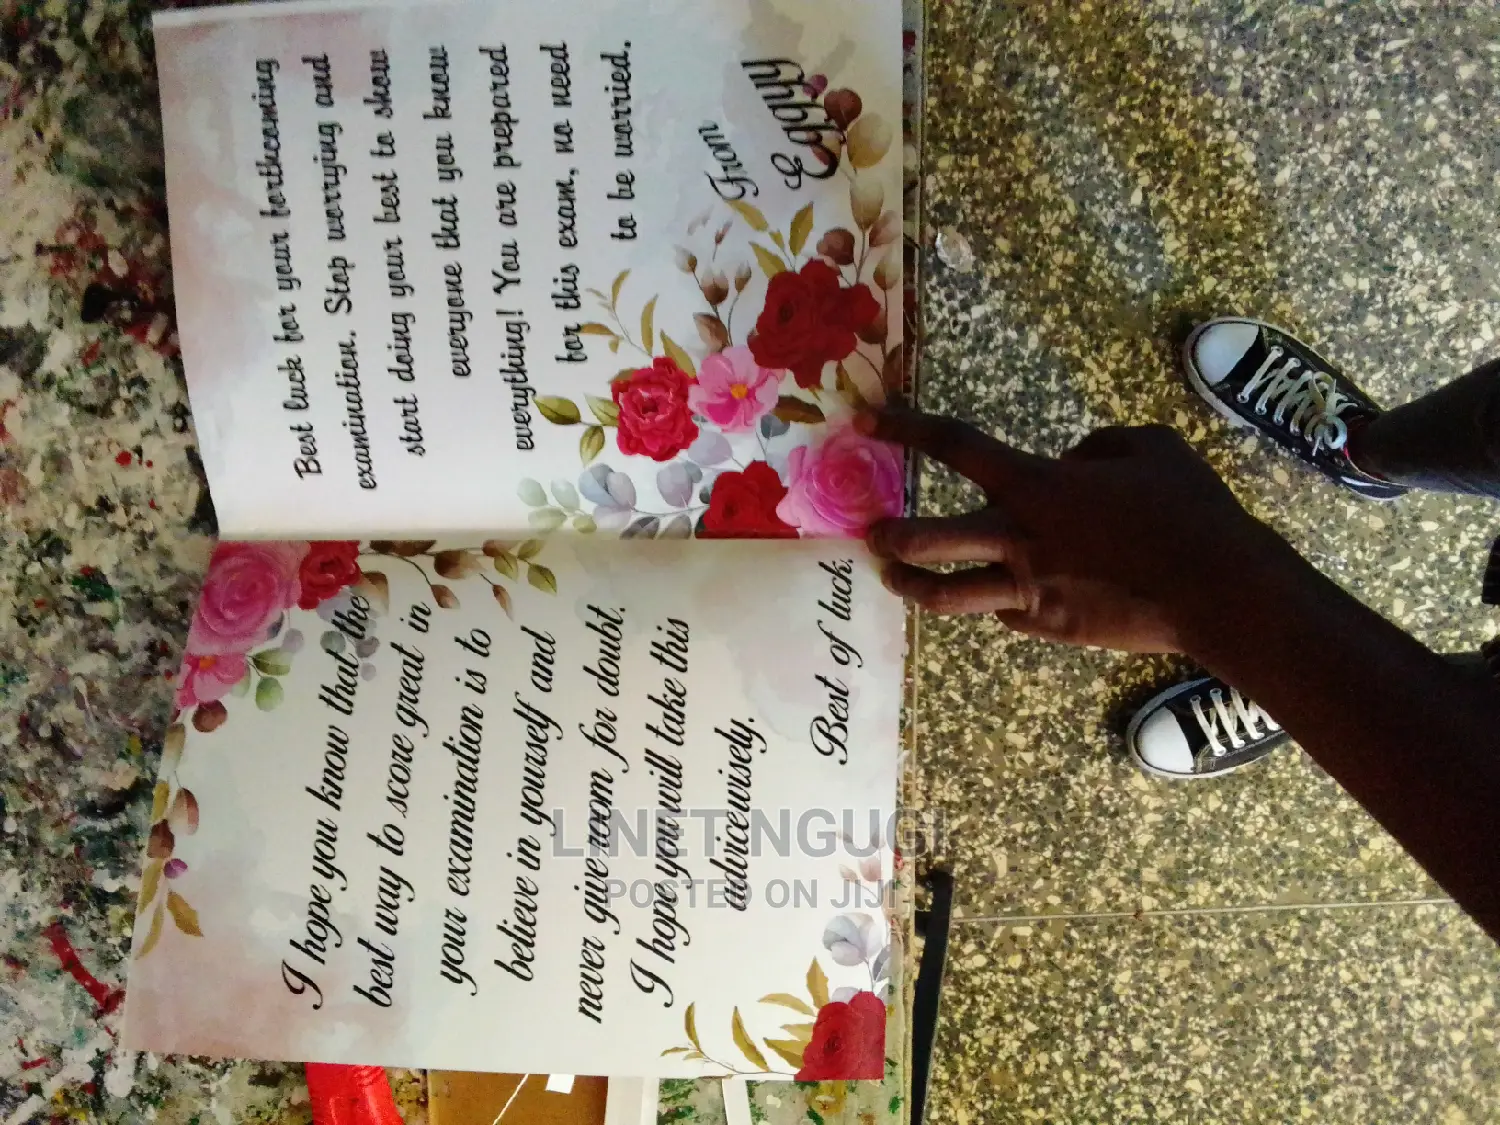 I hope you know that the
best way to score great in
your examination is to
believe in yourself and
never give room for doubt.
I hope you will take this
advicewisely.
Best of luck.
Best luck for your forthcoming
examination. Stop worrying and
start doing your best to show
everyone that you know
everything! You are prepared
for this exam, no need
to be worried.
From
Eqqhy
LINET NGUGI
POSTED ON JIJI